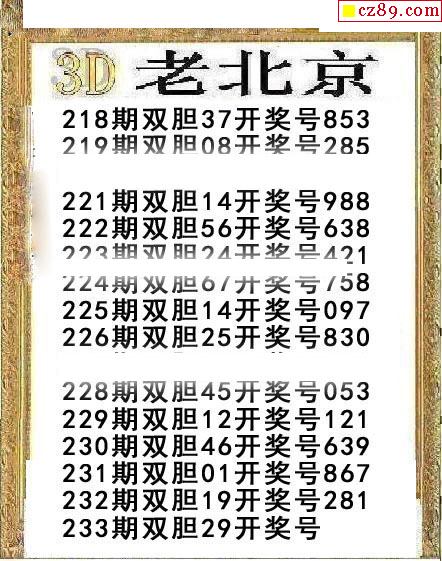 cz89.com
3D 老北京
218期双胆37开奖号853
219期双胆08开奖号285
221期双胆14开奖号988
222期双胆56开奖号638
223期双胆24开奖号421
224期双胆67开奖号758
225期双胆14开奖号097
226期双胆25开奖号830
228期双胆45开奖号053
229期双胆12开奖号121
230期双胆46开奖号639
231期双胆01开奖号867
232期双胆19开奖号281
233期双胆29开奖号